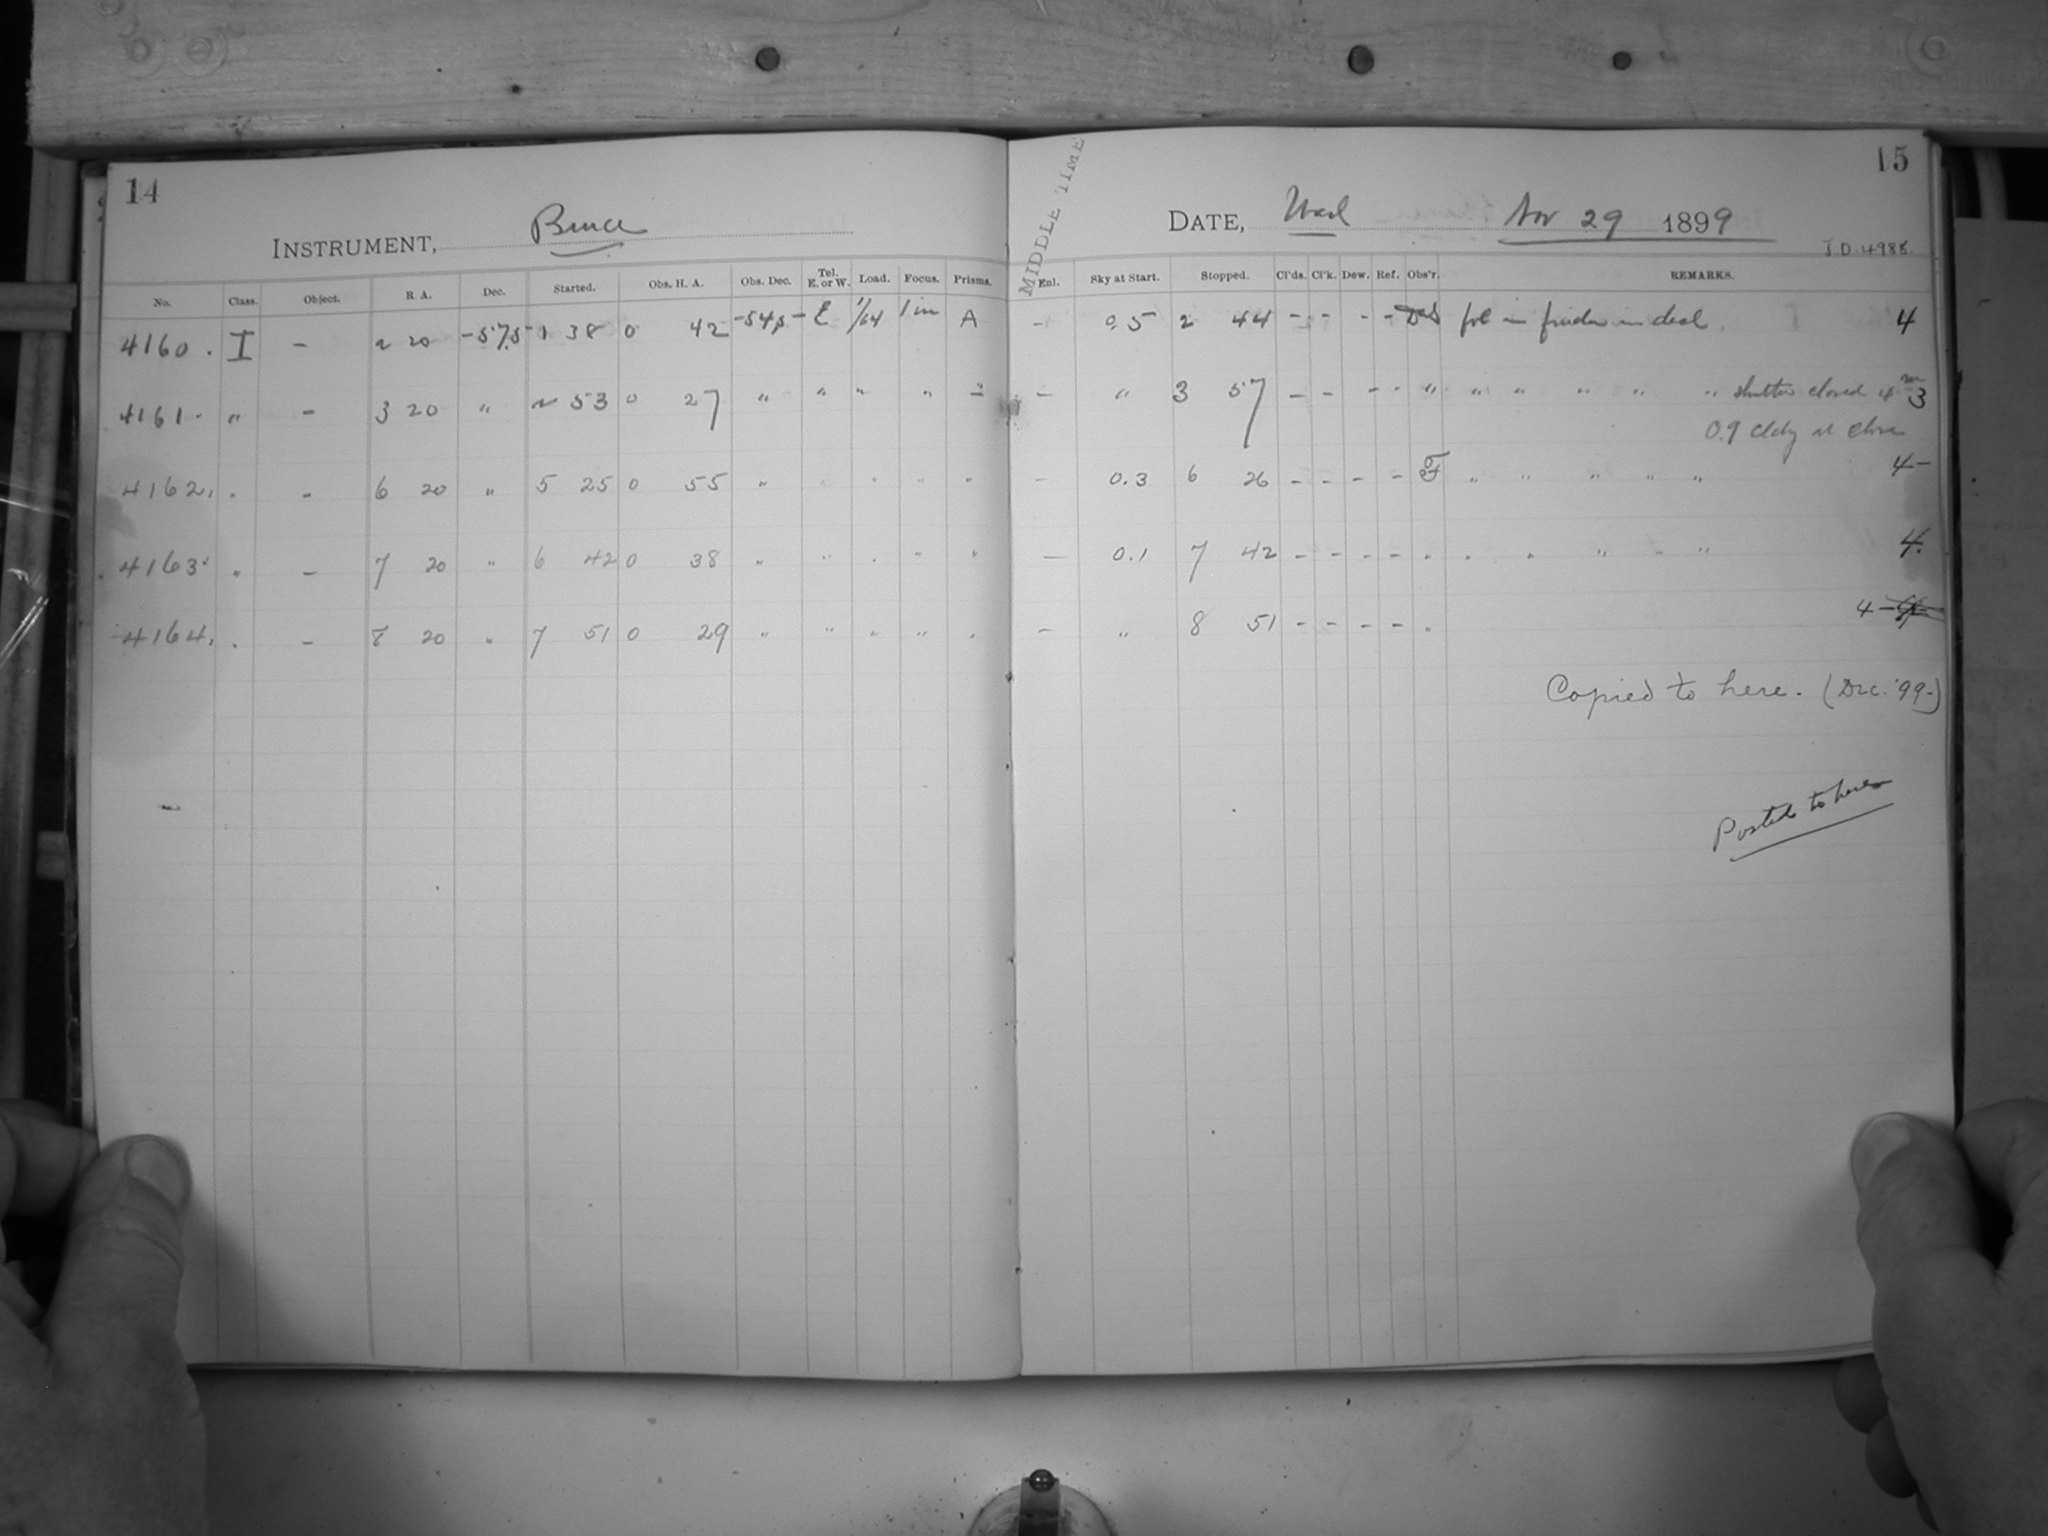 14
INSTRUMENT, Bruce
No. Class. Object. R. A. Dec. Started. Obs. H. A. Obs. Dec. Tel. E. or W. Load. Focus. Prisms.
4160. I - 2 20 -57.5 1 38 0 42 -54.5 - E 1/64 1 in A
4161. " - 3 20 " 2 53 0 27 " " " " "
4162. " - 6 20 " 5 25 0 55 " " " " "
4163. " - 7 20 " 6 42 0 38 " " " " "
4164. " - 8 20 " 7 51 0 29 " " " " "
15
MIDDLE TIME
DATE, Wed Nov 29 1899
J.D. 4988.
Enl. Sky at Start. Stopped. Cl'ds. Cl'k. Dew. Ref. Obs'r. REMARKS.
- 0.5 2 44 - - - - fol in finder in decl 4
- " 3 57 - - - - " " " " " " shutter closed 4 m 3
0.9 cldy at close
- 0.3 6 26 - - - - " " " " " 4-
- 0.1 7 42 - - - - " " " " " " 4.
- " 8 51 - - - - " 4-
Copied to here. (Dec. '99.)
Posted to here